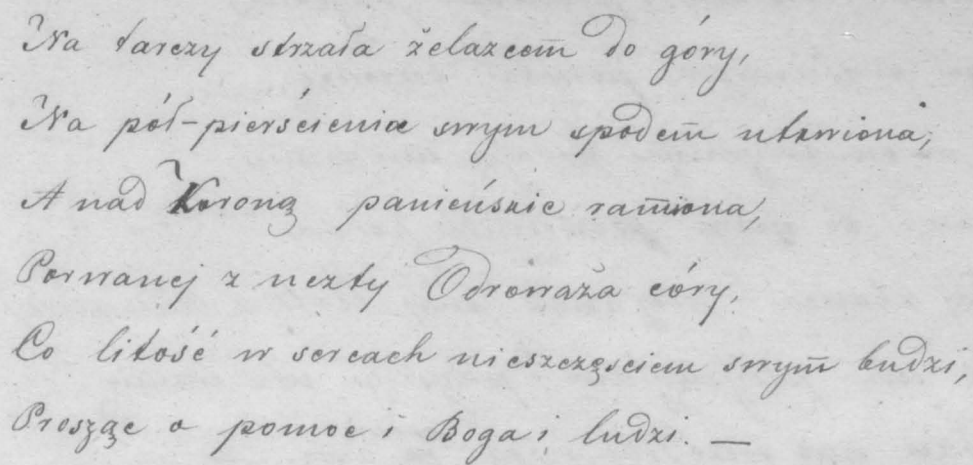 Na tarczy strzała żelazcem̄ do góry,
Na pół-pierścienia swym spodem̄ utkwiona,
A nad Koroną panieńskie ram̄iona,
Porwanej z uczty Odrowąża córy.
Co litość w sercach nieszczęsciem swym̄ budzi,
Prosząc o pomoc i Boga i ludzi. —